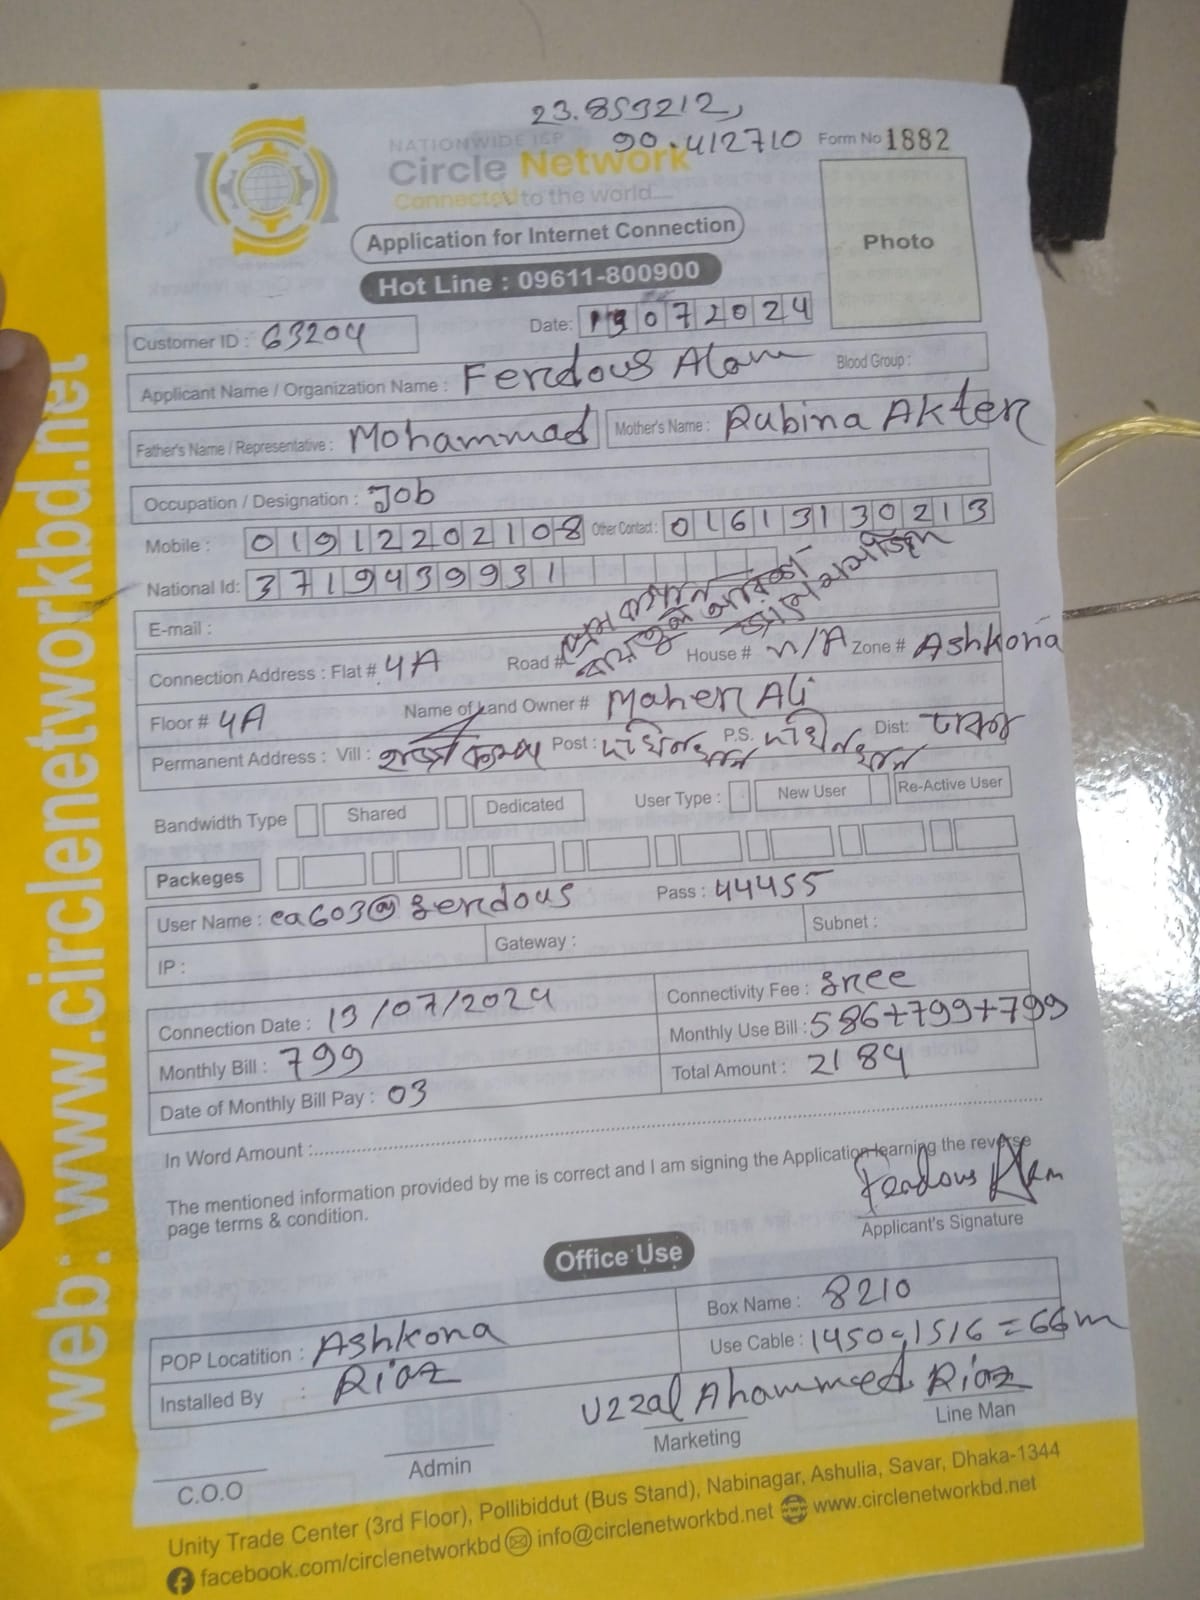 23.853212,
90.412710
NATIONWIDE ISP
Circle Network
Connected to the world....
Form No 1882
Application for Internet Connection
Hot Line : 09611-800900
Photo
Customer ID : 63204
Date: 13072024
Applicant Name / Organization Name : Ferdous Alam Blood Group :
Father's Name / Representative : Mohammad Mother's Name : Rubina Akter
Occupation / Designation : Job
Mobile : 01912202108 Other Contact : 01613130213
National Id: 3719439931
E-mail :
Connection Address : Flat # 4A Road # House # n/A Zone # Ashkona
Floor # 4A Name of Land Owner # Maher Ali
Permanent Address : Vill : Post : দক্ষিনখান P.S. দক্ষিনখান Dist: ঢাকা
Bandwidth Type Shared Dedicated User Type : New User Re-Active User
Packeges
User Name : ea603@ferdous Pass : 44455
IP : Gateway : Subnet :
Connection Date : 13/07/2024 Connectivity Fee : free
Monthly Bill : 799 Monthly Use Bill : 586+799+799
Date of Monthly Bill Pay : 03 Total Amount : 2184
In Word Amount :
The mentioned information provided by me is correct and I am signing the Application learning the reverse
page terms & condition.
Ferdous Alam
Applicant's Signature
Office Use
POP Locatition : Ashkona Box Name : 8210
Installed By : Riaz Use Cable : 1450-1516=66m
Uzzal Ahammed Riaz
C.O.O Admin Marketing Line Man
Unity Trade Center (3rd Floor), Pollibiddut (Bus Stand), Nabinagar, Ashulia, Savar, Dhaka-1344
facebook.com/circlenetworkbd info@circlenetworkbd.net www.circlenetworkbd.net
web: www.circlenetworkbd.net